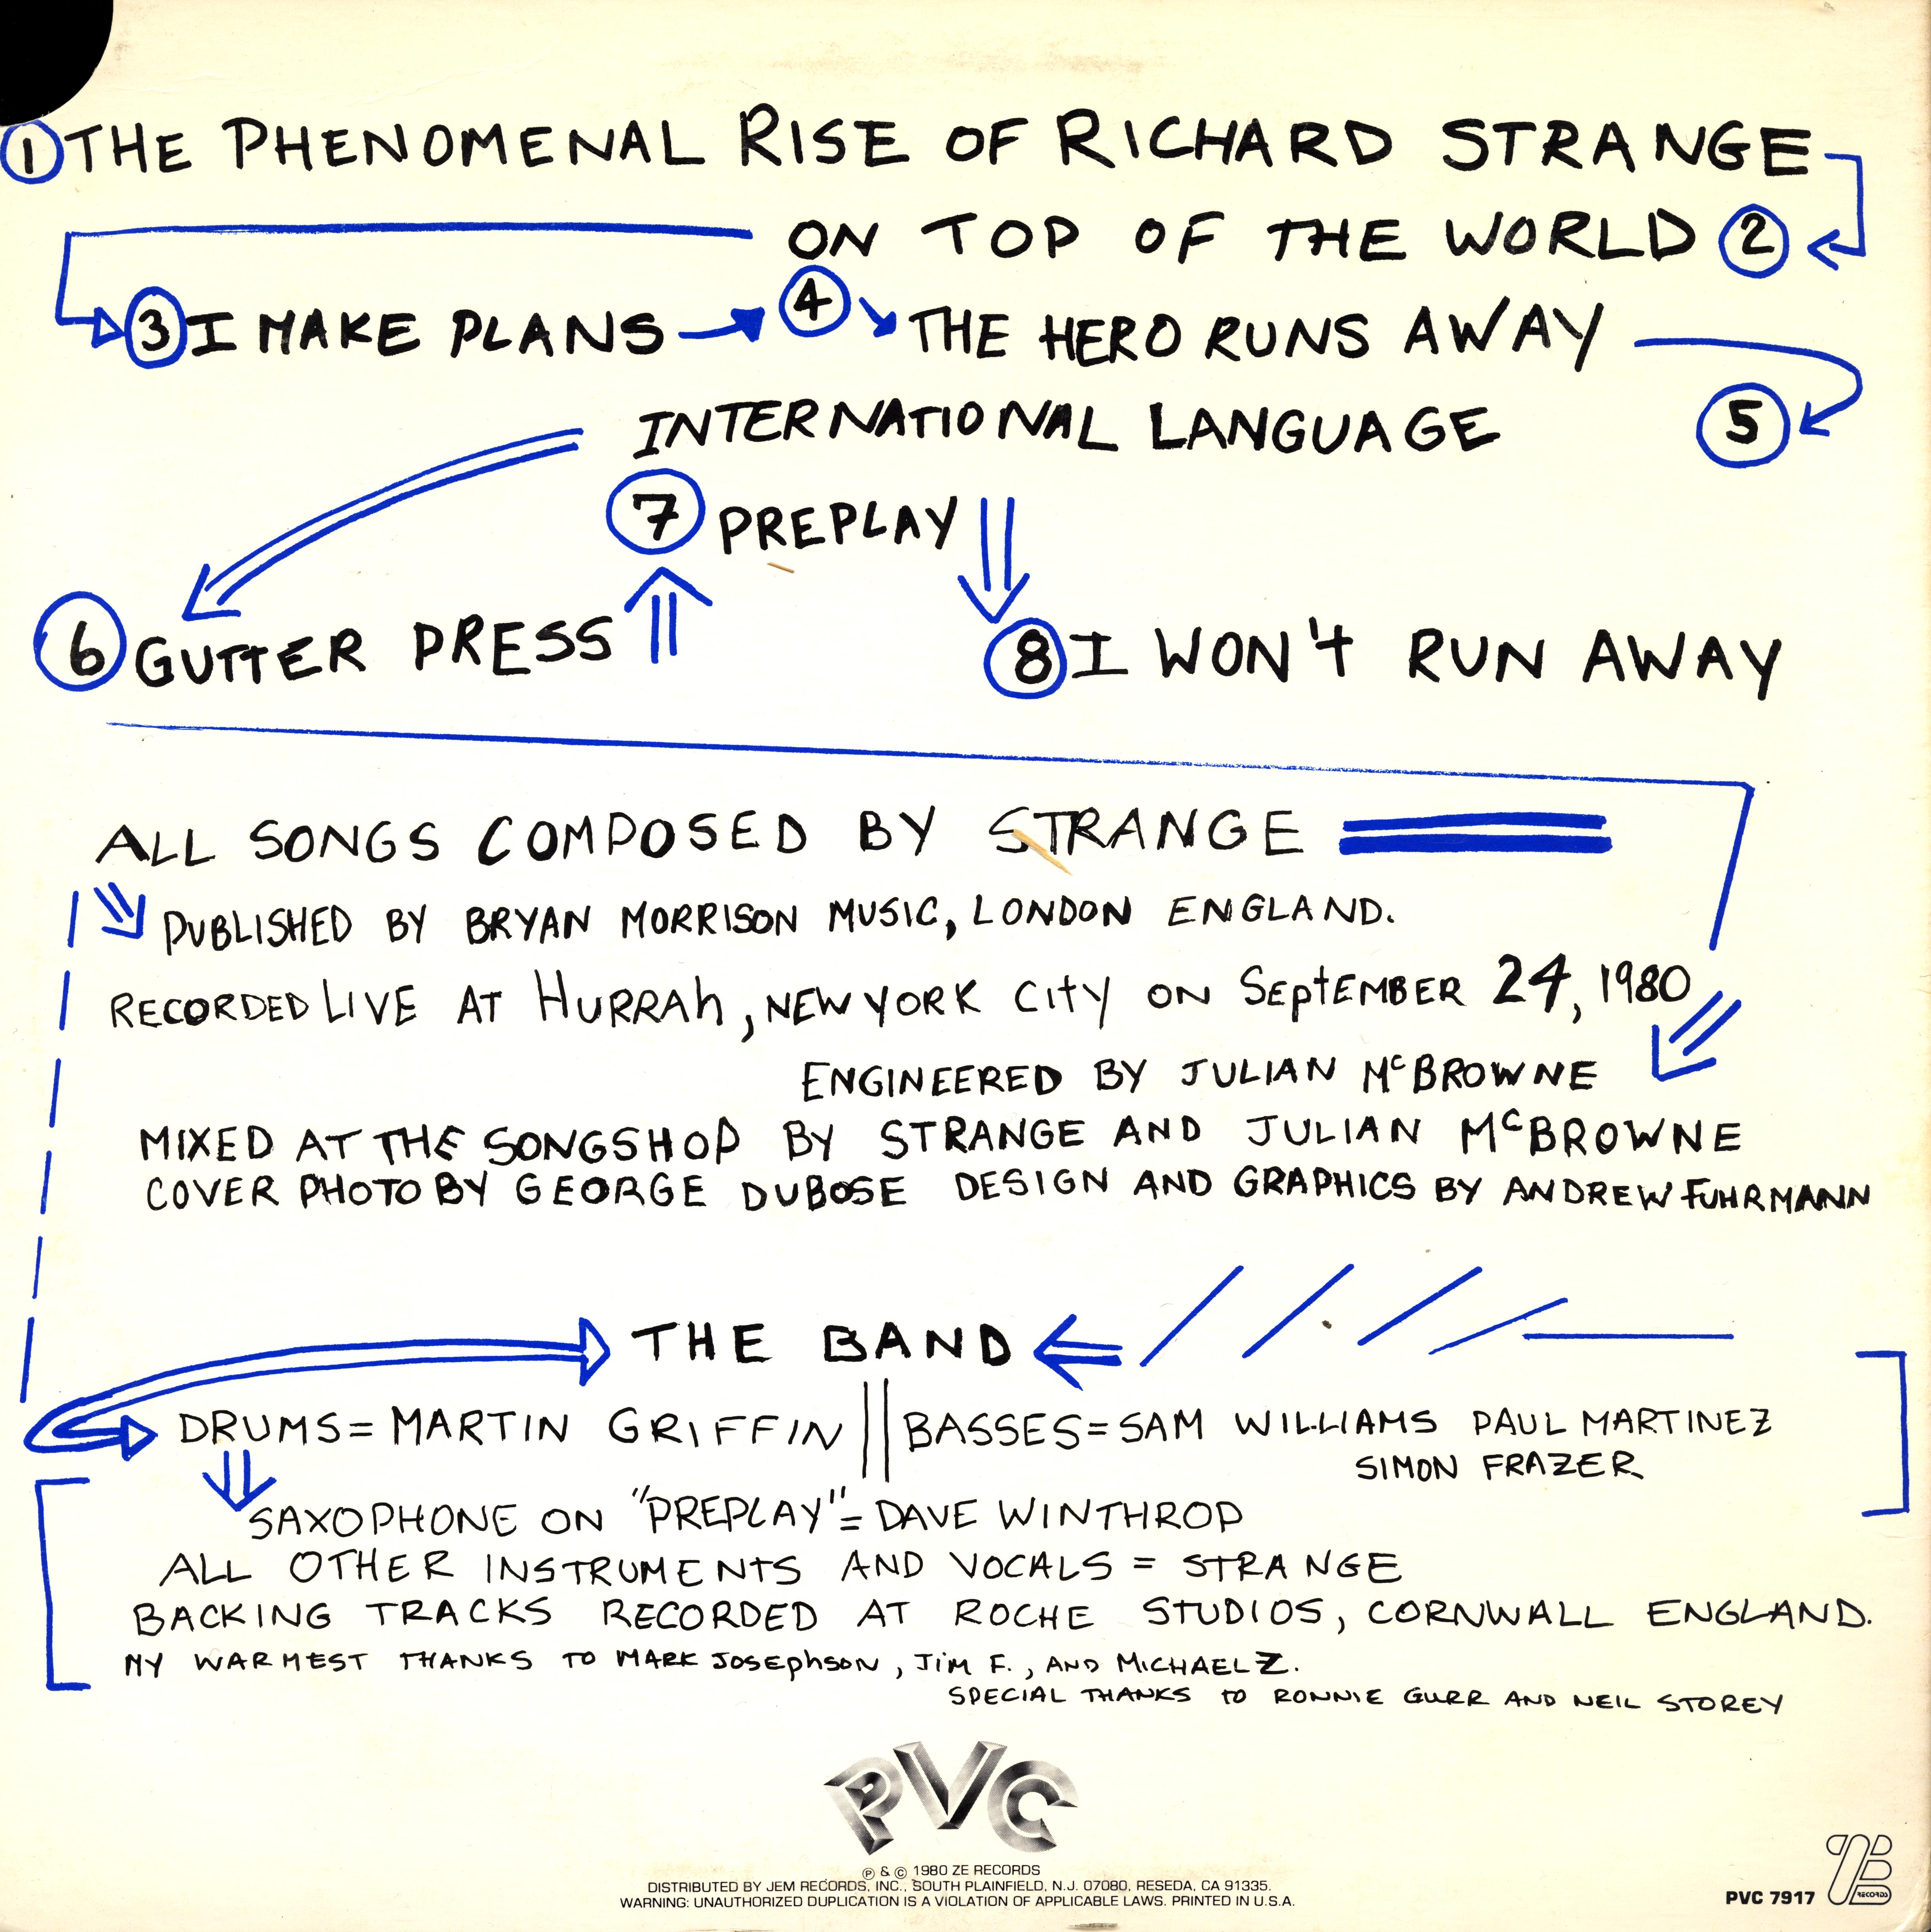 ① THE PHENOMENAL RISE OF RICHARD STRANGE
ON TOP OF THE WORLD ②
③ I MAKE PLANS ④ THE HERO RUNS AWAY
INTERNATIONAL LANGUAGE ⑤
⑦ PREPLAY
⑥ GUTTER PRESS ⑧ I WON't RUN AWAY
ALL SONGS COMPOSED BY STRANGE
PUBLISHED BY BRYAN MORRISON MUSIC, LONDON ENGLAND.
RECORDED LIVE AT HURRAh, NEW YORK City ON SEptEMBER 24, 1980
ENGINEERED BY JULIAN McBROWNE
MIXED AT THE SONGSHOP BY STRANGE AND JULIAN McBROWNE
COVER PHOTO BY GEORGE DUBOSE DESIGN AND GRAPHICS BY ANDREW FUHRMANN
THE BAND
DRUMS = MARTIN GRIFFIN || BASSES = SAM WILLIAMS PAUL MARTINEZ
SIMON FRAZER
SAXOPHONE ON "PREPLAY" = DAVE WINTHROP
ALL OTHER INSTRUMENTS AND VOCALS = STRANGE
BACKING TRACKS RECORDED AT ROCHE STUDIOS, CORNWALL ENGLAND.
MY WARMEST THANKS TO MARK JOSEphSON, JiM F., AND MICHAEL Z.
SPECIAL THANKS to RONNIE GURR AND NEIL STOREY
PVC
℗ & © 1980 ZE RECORDS
DISTRIBUTED BY JEM RECORDS, INC., SOUTH PLAINFIELD, N.J. 07080, RESEDA, CA 91335.
WARNING: UNAUTHORIZED DUPLICATION IS A VIOLATION OF APPLICABLE LAWS. PRINTED IN U.S.A.
PVC 7917
RECORDS